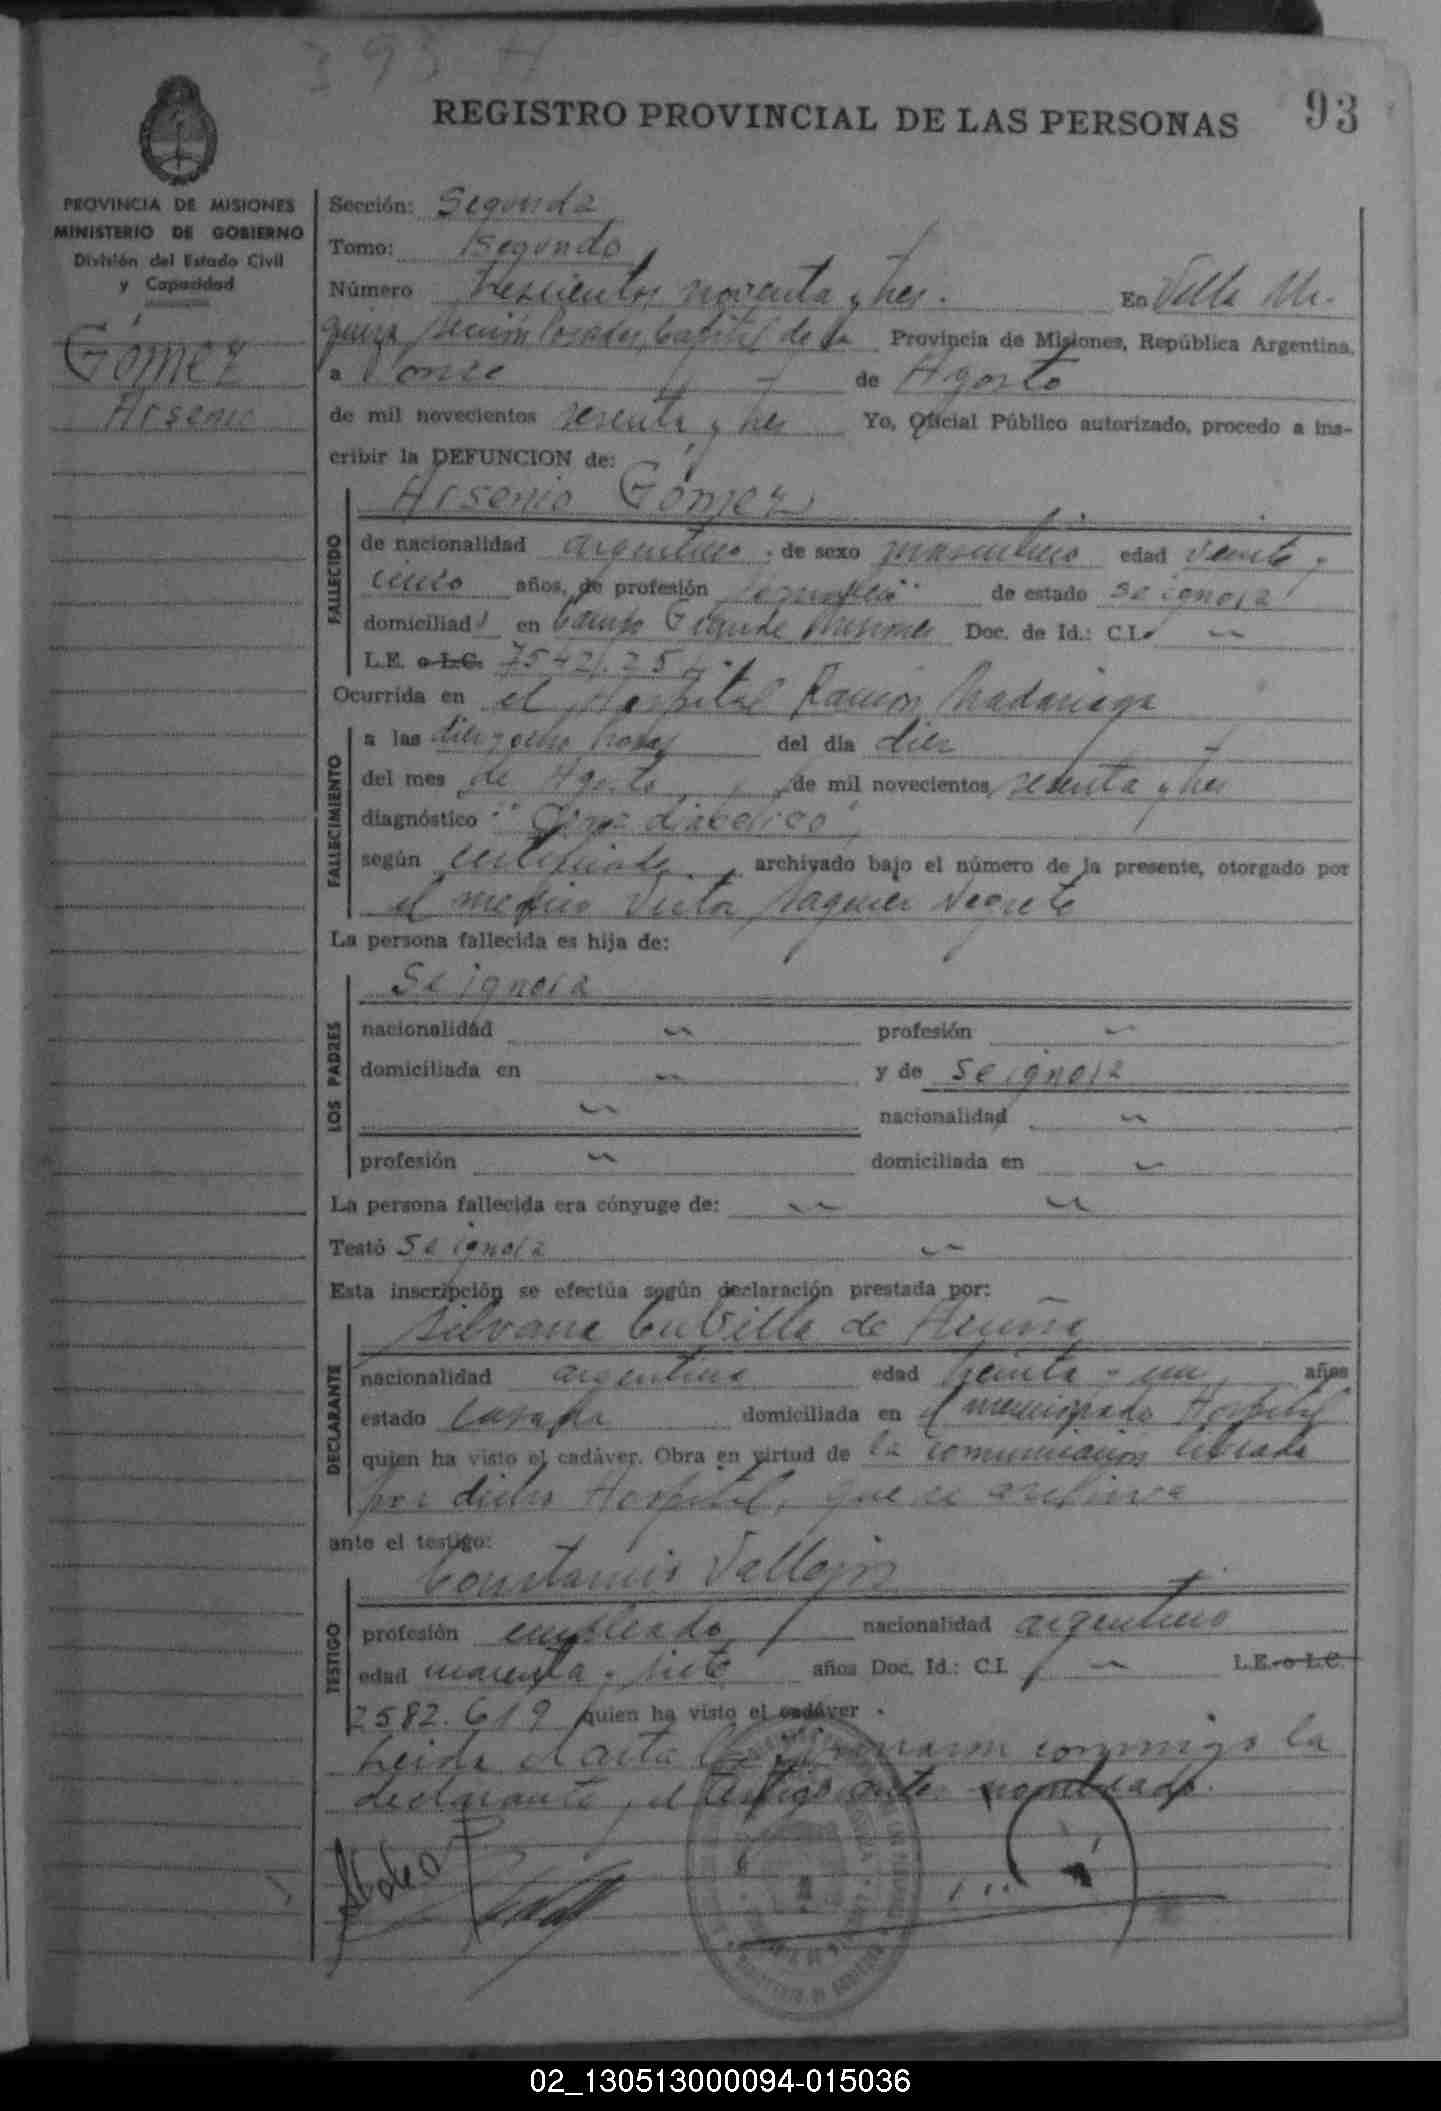 393 A
93
REGISTRO PROVINCIAL DE LAS PERSONAS
PROVINCIA DE MISIONES
MINISTERIO DE GOBIERNO
División del Estado Civil
y Capacidad
Gómez
Arsenio
Sección: Segunda
Tomo: Segundo
Número trescientos noventa y tres. En Villa Ur-
quiza sección Posadas, Capital de la Provincia de Misiones, República Argentina,
a once de Agosto
de mil novecientos sesenta y tres Yo, Oficial Público autorizado, procedo a ins-
cribir la DEFUNCION de:
Arsenio Gómez
FALLECIDO
de nacionalidad argentino de sexo masculino edad veinte y
cinco años, de profesión de estado se ignora
domiciliad en Campo Grande Misiones Doc. de Id.: C.I.
L.E. o L.C. 7542.254
Ocurrida en el Hospital Ramón Madariaga
FALLECIMIENTO
a las diez y ocho horas del día diez
del mes de Agosto de mil novecientos sesenta y tres
diagnóstico "Coma diabético"
según certificado archivado bajo el número de la presente, otorgado por
el médico Victor Vaguer Negrete
La persona fallecida es hija de:
LOS PADRES
Se ignora
nacionalidad profesión
domiciliada en y de se ignora
nacionalidad
profesión domiciliada en
La persona fallecida era cónyuge de:
Testó Se ignora
Esta inscripción se efectúa según declaración prestada por:
DECLARANTE
Silvana Cubilla de Acuña
nacionalidad argentina edad treinta y un años
estado casada domiciliada en el mencionado Hospital
quien ha visto el cadáver. Obra en virtud de la comunicación librada
por dicho Hospital, que se archiva
ante el testigo:
TESTIGO
Constancio Vallejos
profesión empleado nacionalidad argentino
edad cuarenta y siete años Doc. Id.: C.I. L.E. o L.C.
2582.619 quien ha visto el cadáver.
Leida el acta la firmaron conmigo la
declarante y el testigo antes nombrado.
02_130513000094-015036